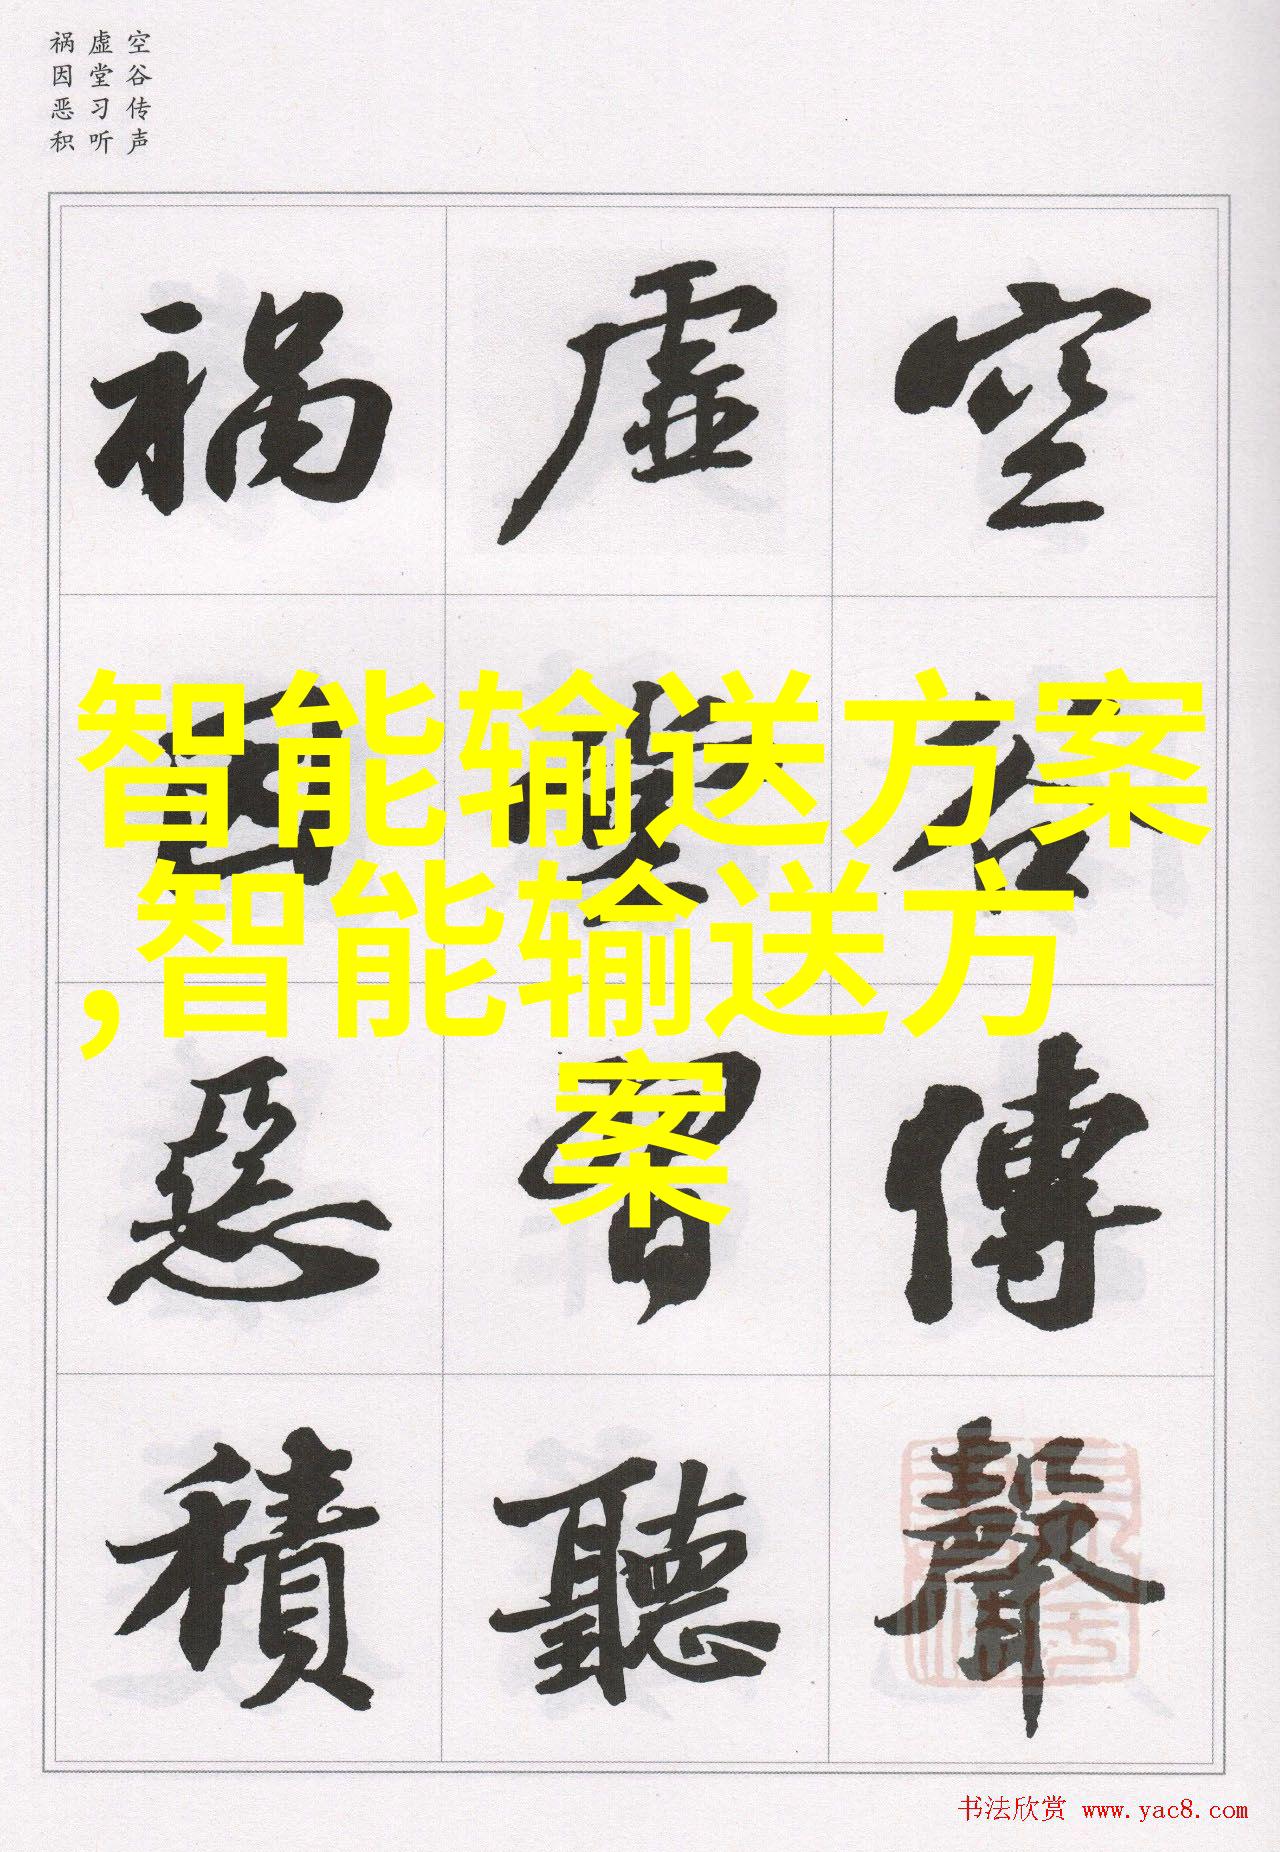 空谷传声
虚堂习听
祸因恶积
空谷傳聲
虚堂習聽
祸因惡積
智能输送方案
,智能输送方
案
书法欣赏 www.yac8.com